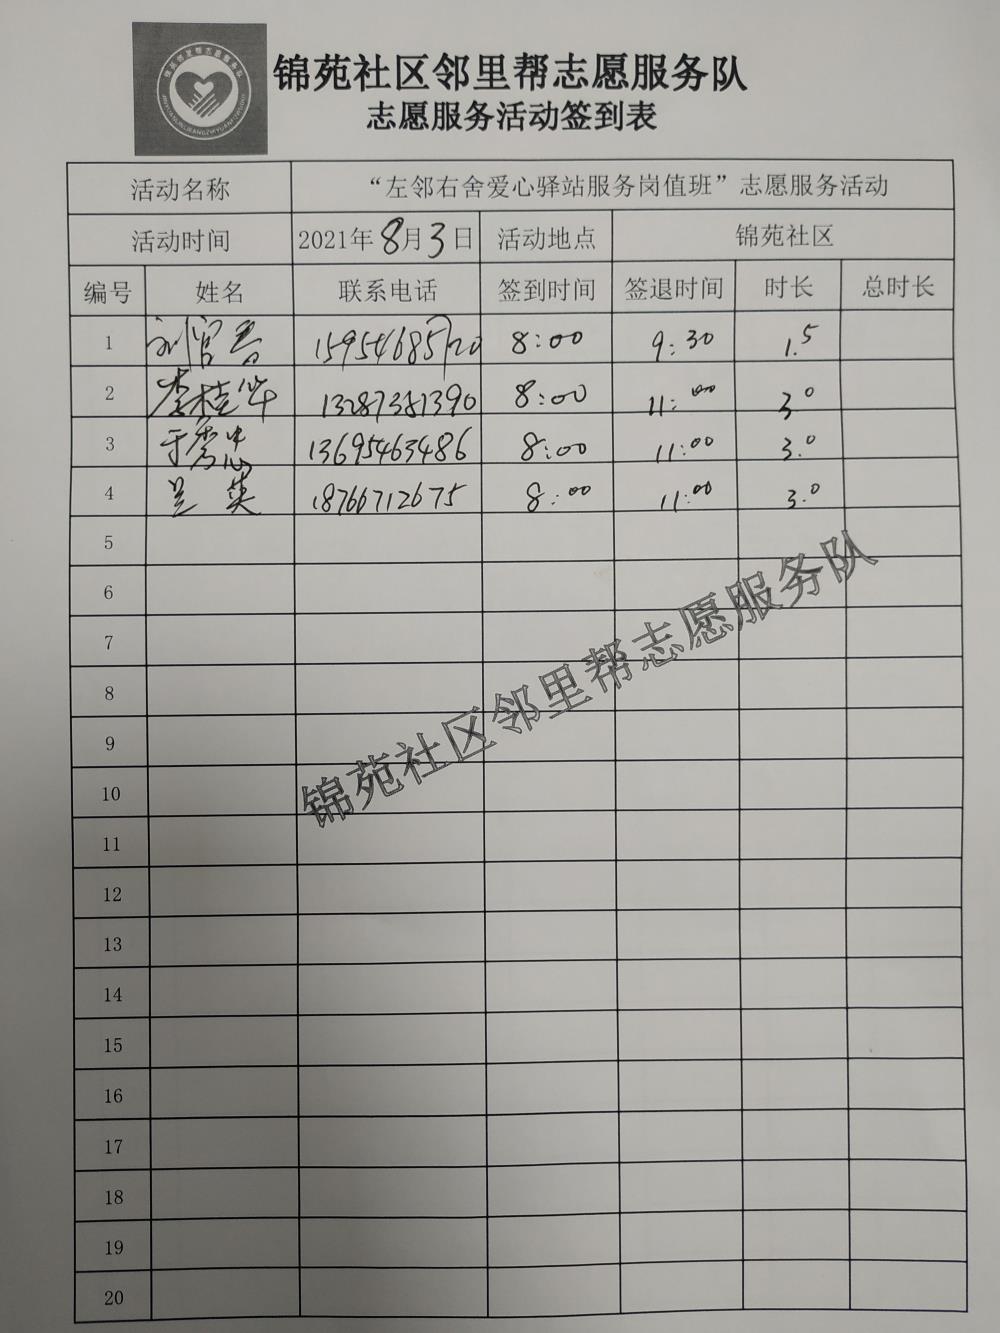 锦苑社区邻里帮志愿服务队
志愿服务活动签到表
活动名称 “左邻右舍爱心驿站服务岗值班”志愿服务活动
活动时间 2021年8月3日 活动地点 锦苑社区
编号 姓名 联系电话 签到时间 签退时间 时长 总时长
1 刘官 8:00 9:30 1.5
2 李桂华 13287381390 8:00 11:00 3.0
3 于秀 13695463486 8:00 11:00 3.0
4 兰英 18766712675 8:00 11:00 3.0
5
6
7
8
9
10
11
12
13
14
15
16
17
18
19
20
锦苑社区邻里帮志愿服务队